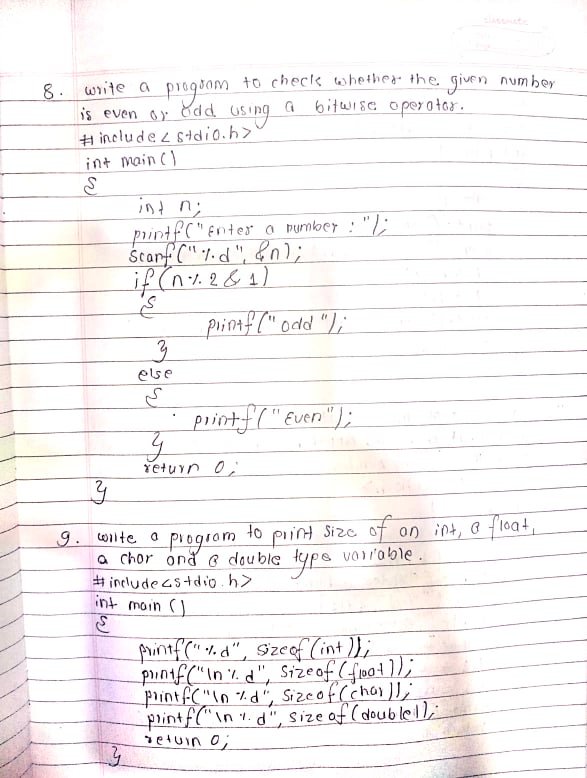 8. write a program to check whether the given number
is even or odd using a bitwise operator.
#include<stdio.h>
int main()
{
int n;
printf("Enter a number : ");
scanf("%d", &n);
if(n%2 & 1)
{
printf("odd");
}
else
{
printf("Even");
}
return 0;
}
9. write a program to print size of an int, a float,
a char and a double type variable.
#include<stdio.h>
int main()
{
printf("%d", sizeof(int));
printf("\n%d", sizeof(float));
printf("\n%d", sizeof(char));
printf("\n%d", sizeof(double));
return 0;
}